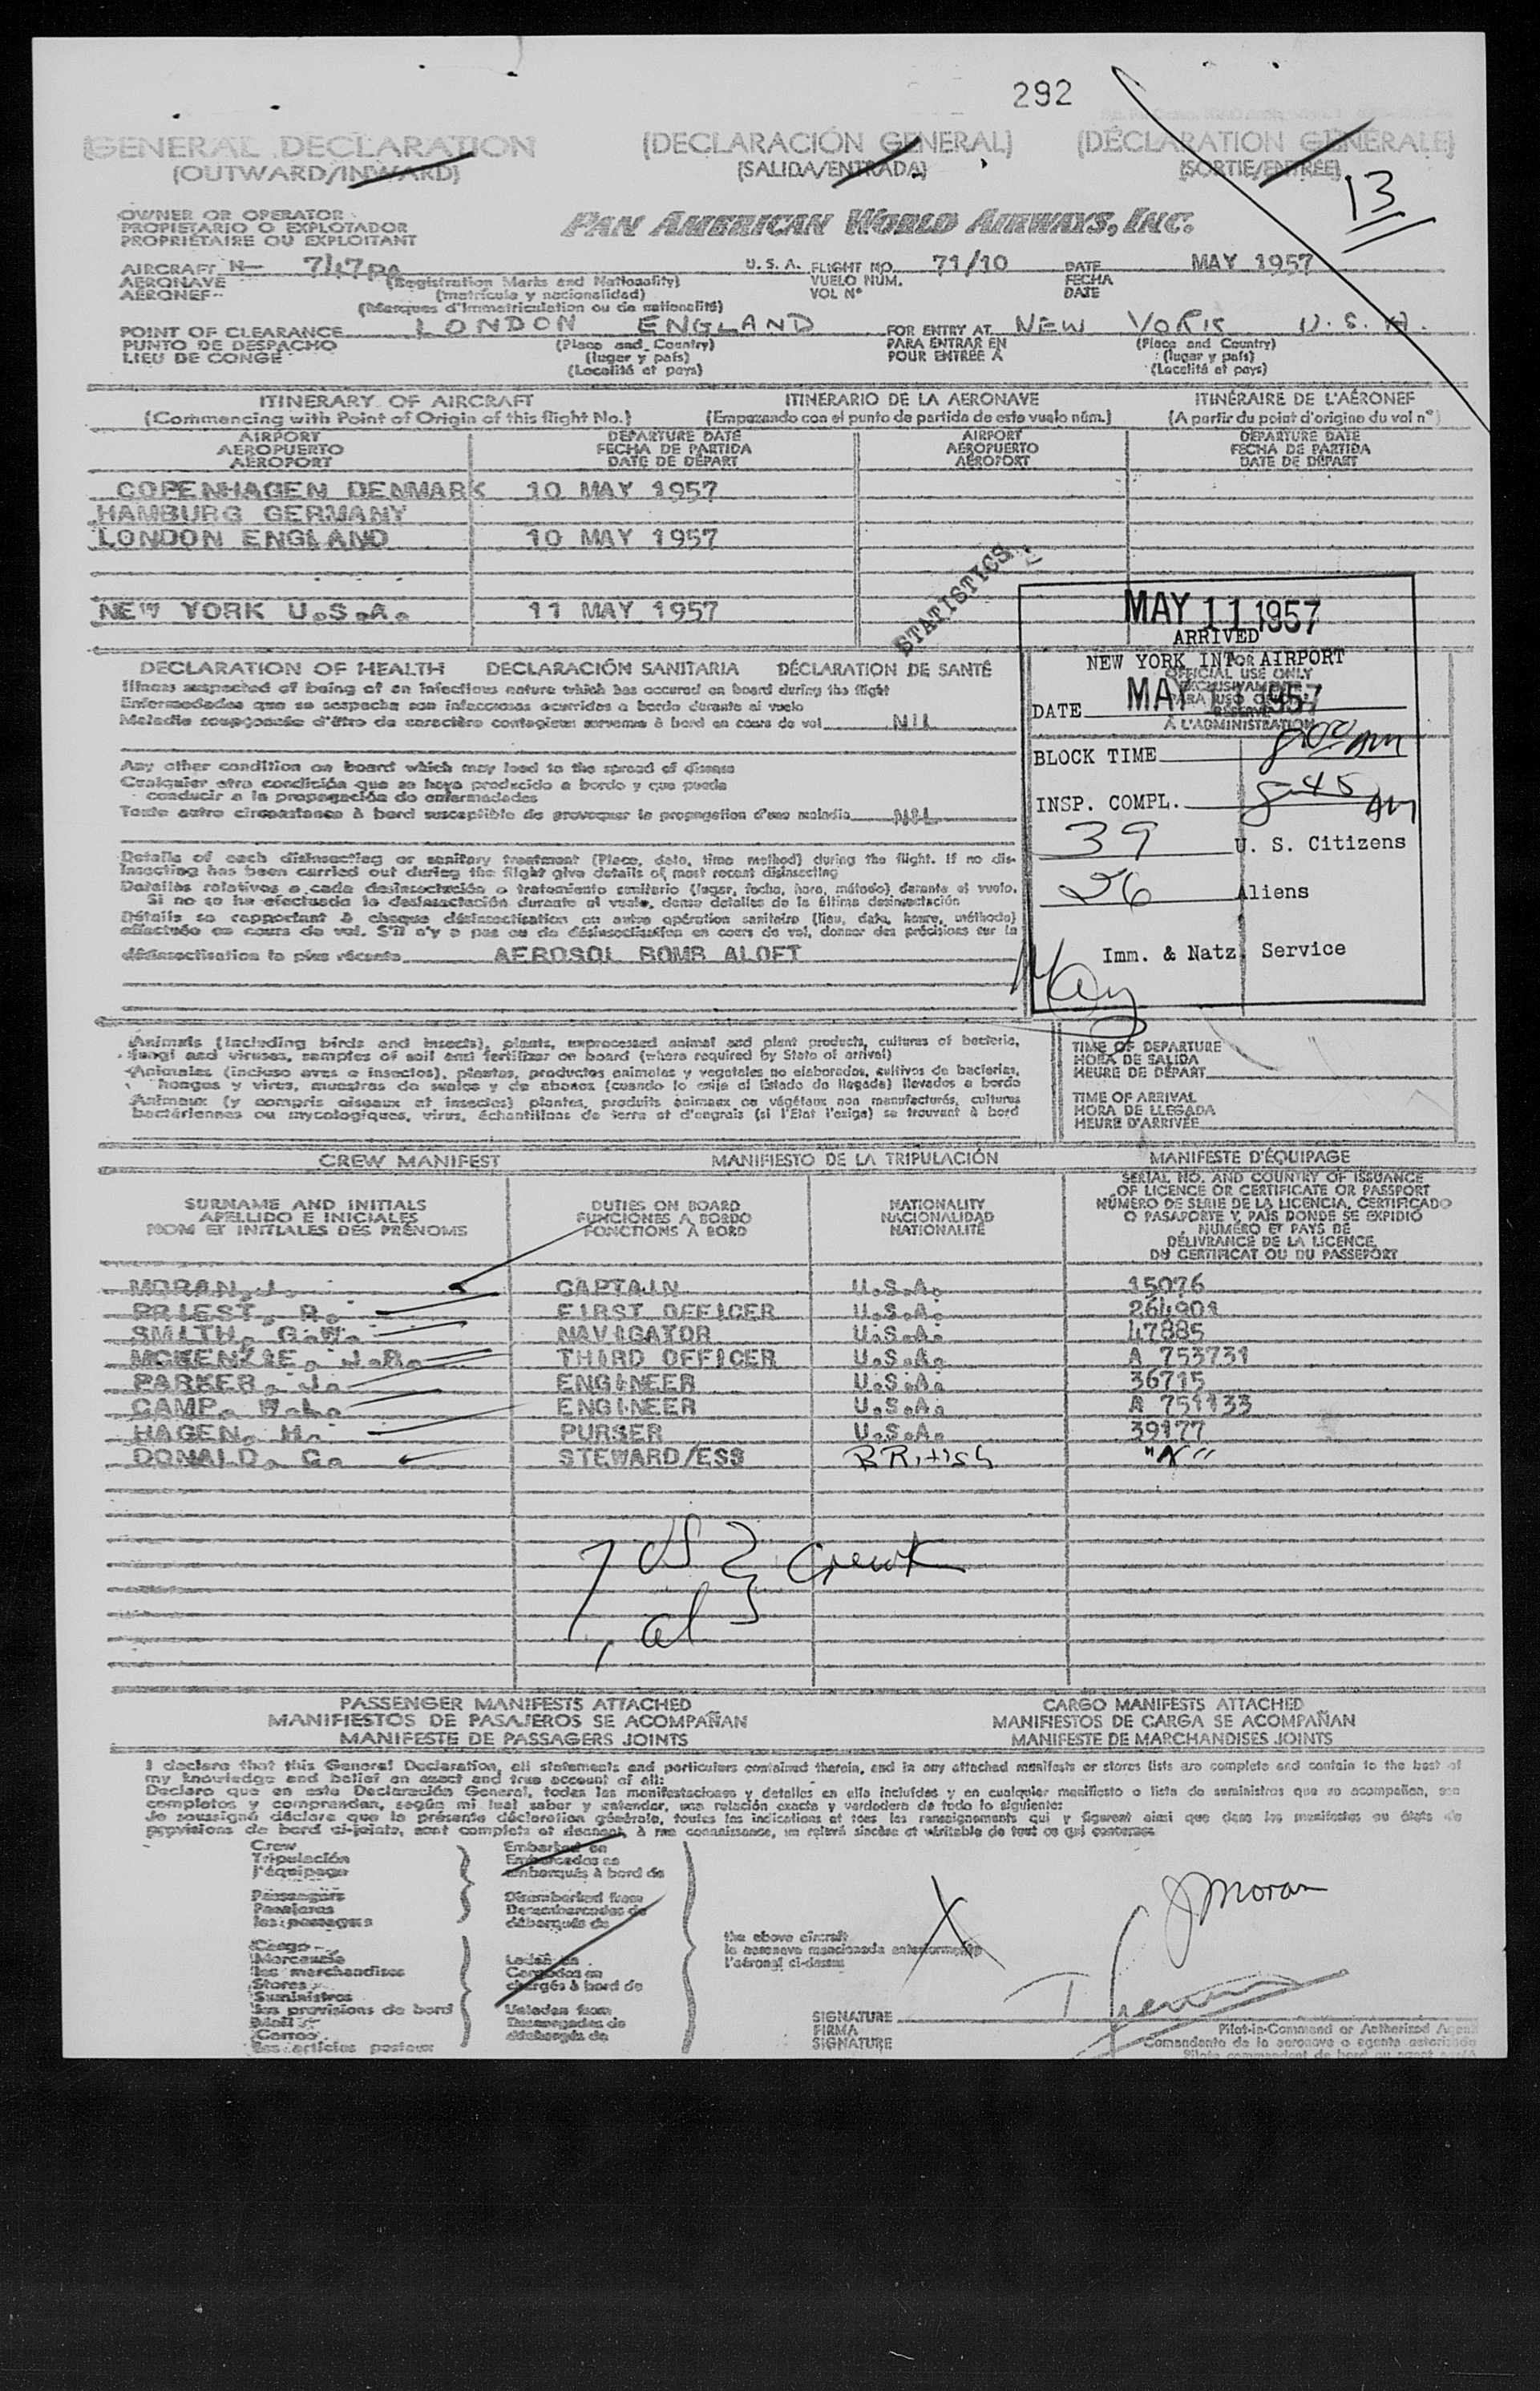 292
(GENERAL DECLARATION (DECLARACIÓN GENERAL) (DÉCLARATION GÉNÉRALE)
(OUTWARD/INWARD) (SALIDA/ENTRADA) (SORTIE/ENTRÉE)
13
OWNER OR OPERATOR
PROPIETARIO O EXPLOTADOR
PROPRIÉTAIRE OU EXPLOITANT
PAN AMERICAN WORLD AIRWAYS, INC.
AIRCRAFT N- U.S.A. FLIGHT NO. 71/10 DATE MAY 1957
AERONAVE (Registration Marks and Nationality) VUELO NÚM. FECHA
AÉRONEF (matrícula y nacionalidad) VOL Nº DATE
(Marques d'immatriculation ou de nationalité)
POINT OF CLEARANCE LONDON ENGLAND FOR ENTRY AT NEW YORK U.S.A.
PUNTO DE DESPACHO (Place and Country) PARA ENTRAR EN (Place and Country)
LIEU DE CONGÉ (lugar y país) POUR ENTRÉE A (lugar y país)
(Localité et pays) (Localité et pays)
ITINERARY OF AIRCRAFT ITINERARIO DE LA AERONAVE ITINÉRAIRE DE L'AÉRONEF
(Commencing with Point of Origin of this flight No.) (Empezando con el punto de partida de este vuelo núm.) (A partir du point d'origine du vol nº)
AIRPORT DEPARTURE DATE AIRPORT DEPARTURE DATE
AEROPUERTO FECHA DE PARTIDA AEROPUERTO FECHA DE PARTIDA
AÉROPORT DATE DE DÉPART AÉROPORT DATE DE DÉPART
COPENHAGEN DENMARK 10 MAY 1957
HAMBURG GERMANY
LONDON ENGLAND 10 MAY 1957
NEW YORK U.S.A. 11 MAY 1957
STATISTICS
MAY 11 1957
ARRIVED
NEW YORK INT AIRPORT
OFFICIAL USE ONLY
DATE MAY 11 1957
À L'ADMINISTRATION
BLOCK TIME 8:00 AM
INSP. COMPL. 8-45 AM
39 U. S. Citizens
26 Aliens
Imm. & Natz. Service
DECLARATION OF HEALTH DECLARACIÓN SANITARIA DÉCLARATION DE SANTÉ
Illness suspected of being of an infectious nature which has occured on board during the flight
Enfermedades que se sospecha son infecciosas ocurridas a bordo durante el vuelo
Maladie soupçonnée d'être de caractère contagieux survenue à bord en cours de vol NIL
Any other condition on board which may lead to the spread of disease
Cualquier otra condición que se haya producido a bordo y que pueda
conducir a la propagación de enfermedades
Toute autre circonstance à bord susceptible de provoquer la propagation d'une maladie NIL
Details of each disinsecting or sanitary treatment (Place, date, time method) during the flight. If no dis-
insecting has been carried out during the flight give details of most recent disinsecting
Detalles relativos a cada desinsectación o tratamiento sanitario (lugar, fecha, hora, método) durante el vuelo.
Si no se ha efectuado la desinsectación durante el vuelo, dense detalles de la última desinsectación
Détails se rapportant à chaque désinsectisation ou autre opération sanitaire (lieu, date, heure, méthode)
effectuée en cours de vol. S'il n'y a pas eu de désinsectisation en cours de vol, donner des précisions sur la
désinsectisation la plus récente AEROSOL BOMB ALOFT
Animals (including birds and insects), plants, unprocessed animal and plant products, cultures of bacteria,
fungi and viruses, samples of soil and fertilizer on board (where required by State of arrival)
Animales (incluso aves e insectos), plantas, productos animales y vegetales no elaborados, cultivos de bacterias,
hongos y virus, muestras de suelos y de abonos (cuando lo exija el Estado de llegada) llevados a bordo
Animaux (y compris oiseaux et insectes) plantes, produits animaux ou végétaux non manufacturés, cultures
bactériennes ou mycologiques, virus, échantillons de terre et d'engrais (si l'Etat l'exige) se trouvant à bord
TIME OF DEPARTURE
HORA DE SALIDA
HEURE DE DÉPART
TIME OF ARRIVAL
HORA DE LLEGADA
HEURE D'ARRIVÉE
CREW MANIFEST MANIFIESTO DE LA TRIPULACIÓN MANIFESTE D'ÉQUIPAGE
SURNAME AND INITIALS DUTIES ON BOARD NATIONALITY SERIAL NO. AND COUNTRY OF ISSUANCE
APELLIDO E INICIALES FUNCIONES A BORDO NACIONALIDAD OF LICENCE OR CERTIFICATE OR PASSPORT
NOM ET INITIALES DES PRÉNOMS FONCTIONS À BORD NATIONALITÉ NÚMERO DE SERIE DE LA LICENCIA, CERTIFICADO
O PASAPORTE Y PAÍS DONDE SE EXPIDIÓ
NUMÉRO ET PAYS DE
DÉLIVRANCE DE LA LICENCE,
DU CERTIFICAT OU DU PASSEPORT
MORAN, J. CAPTAIN U.S.A. 15076
PRIEST, R. FIRST OFFICER U.S.A. 264901
SMITH, G.W. NAVIGATOR U.S.A. 47885
MCKENZIE, J.R. THIRD OFFICER U.S.A. A 753731
PARKER, J. ENGINEER U.S.A. 36715
CAMP, W.L. ENGINEER U.S.A. A 751133
HAGEN, H. PURSER U.S.A. 39177
DONALD, G. STEWARD/ESS BRitish "X"
7
Crew
1 al
PASSENGER MANIFESTS ATTACHED CARGO MANIFESTS ATTACHED
MANIFIESTOS DE PASAJEROS SE ACOMPAÑAN MANIFIESTOS DE CARGA SE ACOMPAÑAN
MANIFESTE DE PASSAGERS JOINTS MANIFESTE DE MARCHANDISES JOINTS
I declare that this General Declaration, all statements and particulars contained therein, and in any attached manifests or stores lists are complete and contain to the best of
my knowledge and belief an exact and true account of all:
Declaro que en esta Declaración General, todas las manifestaciones y detalles en ella incluídos y en cualquier manifiesto o lista de suministros que se acompañen, son
completos y comprenden, según mi leal saber y entender, una relación exacta y verdadera de todo lo siguiente:
Je soussigné déclare que la présente déclaration générale, toutes les indications et tous les renseignements qui y figurent ainsi que dans les manifestes ou états de
provisions de bord ci-joints, sont complets et donnent, à ma connaissance, un relevé sincère et véritable de tout ce qui concerne
Crew Embarked on
Tripulación Embarcados en
l'équipage embarqués à bord de
Passengers Disembarked from
Pasajeros Desembarcados de
les passagers débarqués de
Cargo
Mercancía Laden on
les marchandises Cargados en
Stores chargés à bord de
Suministros
les provisions de bord Unladen from
Mail Descargados de
Correo déchargés de
les articles postaux
the above aircraft
la aeronave mencionada anteriormente
l'aéronef ci-dessus
X
J Moran
SIGNATURE
FIRMA
SIGNATURE
Pilot-in-Command or Authorized Agent
Comandante de la aeronave o agente autorizado